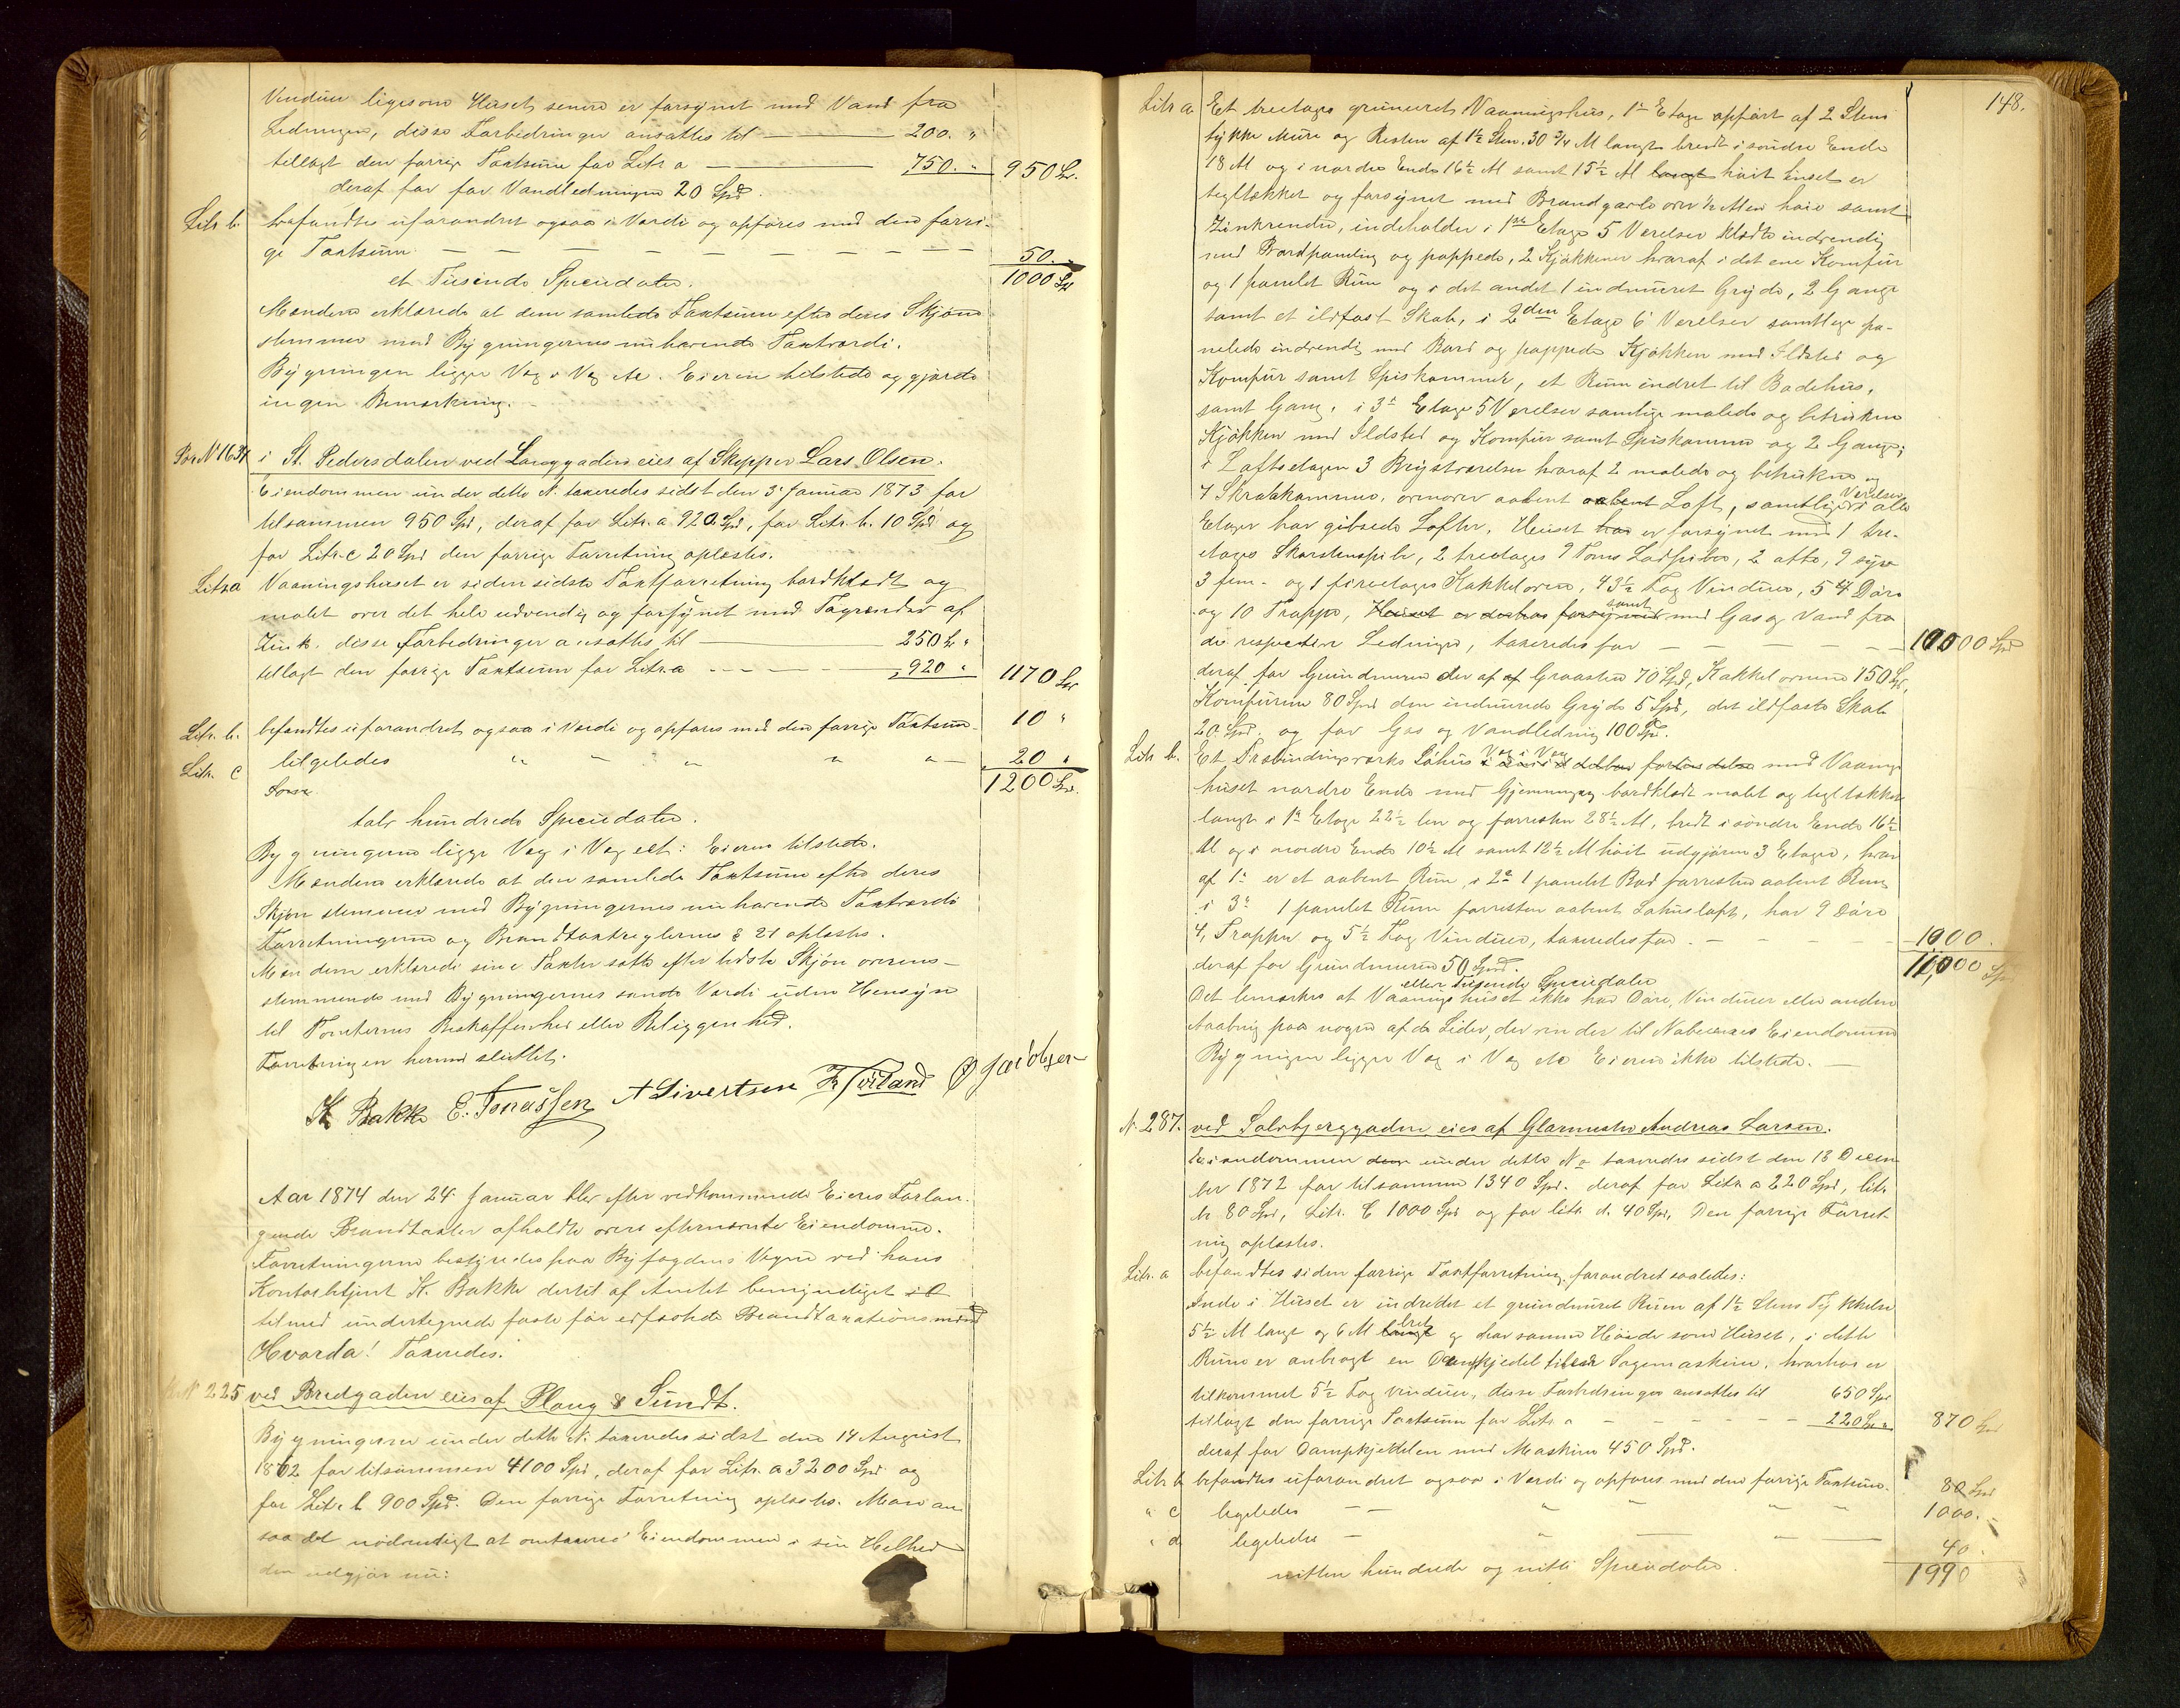 Vinduer ligesom Huset senere er forsynet med Vand fra
Ledningen, disse Forbedringer ansattes til — 200. "
tillagt den forrige Taxtsum for Litr a — 750. " 950 Spd.
deraf for for Vandledningen 20 Spd.
Litr b. befandtes uforandret ogsaa i Værdi og opføres med den forri-
ge Taxtsum — — — — — — — 50. "
et Tusinde Speciedaler. 1000 Spd
Mændene erklærede at den samlede Taxtsum efter deres Skjøn
stemmer med Bygningernes nuhavende Taxtværdi.
Bygningen ligger Væg i Væg etc. Eieren tilstede og gjorde
ingen Bemærkning.
Br. N 1634 i St. Pedersdalen ved Langgaden eies af Skipper Lars Olsen.
Eiendommen under dette N. taxeredes sidst den 3 Januar 1873 for
tilsammen 950 Spd, deraf for Litr. a 920 Spd, for Litr. b. 10 Spd og
for Litr. c 20 Spd den forrige Forretning oplæstes.
Litr a Vaaningshuset er siden sidste Taxtforretning bordklædt og
malet over det hele udvendig og forsynet med Tagrender af
Zink, disse Forbedringer ansattes til — 250 Sp "
tillagt den forrige Taxtsum for Litr. a — — — 920 " 1170 Spd
Litr. b. befandtes uforandret ogsaa i Værdi og opføres med den forrige Taxtsum. 10 "
Litr. c ligeledes " — " " " — 20 "
1200 Spd.
tolv hundrede Speciedaler.
Bygningerne ligger Væg i Væg etc: Eieren tilstede.
Mændene erklærede at den samlede Taxtsum efter deres
Skjøn stemmer med Bygningernes nu havende Taxtværdi
Forretningerne og Brandtaxtreglernes § 21 oplæstes.
Mændene erklærede sine Taxter satte efter bedste Skjøn overens-
stemmende med Bygningernes sande Værdi uden Hensyn
til Tomternes Beskaffenhed eller Beliggenhed.
Forretningen hermed sluttet.
K Bakke E. Jonassen A Sivertsen O Jacobsen
Aar 1874 den 24 Januar blev efter vedkommende Eieres Forlan-
gende Brandtaxter afholdte over efternævnte Eiendomme.
Forretningerne bestyredes paa Byfogdens Vegne ved hans
Kontorbetjent K. Bakke dertil af Amtet bemyndiget
tilmed undertegnede faste før edfæstede Brandtaxationsmænd
Hvorda! Taxeredes.
N 225 ved Bredgaden eies af Ploug & Sundt.
Bygningerne under dette N. taxeredes sidst den 14 August
1862 for tilsammen 4100 Spd, deraf for Litr. a 3200 Spd og
for Litr. b 900 Spd. Den forrige Forretning oplæstes. Man an-
saa det nødvendigt at omtaxere Eiendommen i sin Helhed
den udgjør nu:
148.
Litr a Et treetages grundmuret Vaaningshus, 1e Etage opført af 2 Stens
tykke Mure og Resten af 1½ Sten. 30 3/4 Al langt bredt i søndre Ende
18 Al og i nordre Ende 16½ Al samt 15½ Al langt høit huset er
tegltækket og forsynet med Brandgavle over ½ Alen høie samt
Zinkrender, indeholder i 1ste Etage 5 Værelser klædte indvendig
med Bordpanling og pappede, 2 Kjøkkener hvoraf i det ene Komfur
og 1 panelet Rum og i det andet 1 indmuret Gryde, 2 Gange
samt et ildfast Skab, i 2den Etage 6 Værelser samtlige pa-
nelede indvendig med Bord og pappede Kjøkken med Ildsted og
Komfur samt Spiskammer, et Rum indret til Badehus,
samt Gang, i 3e Etage 5 Værelser samtlige malede og betrukne
Kjøkken med Ildsted og Komfur samt Spiskammer og 2 Gange,
i Loftsetagen 3 Brystværelser hvoraf 2 malede og betrukne og
7 Skraakammere, ovenover aabent aabent Loft, samtlige Værelser i alle
Etager har gibsede Lofter. Huset har er forsynet med 1 tre-
etages Skorstenspibe, 2 treetages 9 Toms Ladpiber, 2 otte, 9 syv
3 fem- og 1 fireetages Kakkelovne, 43½ Fag Vinduer, 54 Døre
og 10 Trapper, Huset er derhos forsynet samt med Gas og Vand fra
de respective Ledninger, taxeredes for — — — — 10000 Spd
deraf for Grundmuren der af af Graasten 70 Spd, Kakkelovnene 150 Spd,
Komfurene 80 Spd den indmurede Gryde 5 Spd, det ildfaste Skab
20 Spd. og for Gas og Vandledning 100 Spd.
Litr b. Et Træbindingsværks Søhus Væg i Væg med Vaanings
huset nordre Ende med Gjennemgang bordklædt malet og tegltækket
langt i 1e Etage 22½ Alen og forresten 28½ Al, bredt i søndre Ende 16½
Al og i nordre Ende 10½ Al samt 12½ Al høit udgjørende 3 Etager, hvor
af 1e er et aabent Rum, i 2e 1 panelet Bod forresten aabent Rum,
i 3e 1 panelet Rum forresten aabent Søhusloft, har 9 Døre
4 Trapper og 5½ Fag Vinduer, taxeredes for — — — 1000.
deraf for Grundmuren 50 Spd. 11,000 Spd
elleve Tusende Speciedaler
Det bemærkes at Vaaningshuset ikke har Døre, Vinduer eller anden
Aabning paa nogen af de Sider, der vender til Naboernes Eiendomme
Bygningen ligger Væg i Væg etc Eieren ikke tilstede. —
N. 287. ved Solvbjerggaden eies af Glarmester Andreas Larsen.
Eiendommen den under dette No taxeredes sidst den 18 Decem
ber 1872 for tilsammen 1340 Spd. deraf for Litr a 220 Spd, litr
b. 80 Spd, Litr. C 1000 Spd og for litr. d. 40 Spd, Den forrige Forret-
ning oplæstes.
Litr. a befandtes siden forrige Taxtforretning forandret saaledes:
Inde i Huset er indrettet et grundmuret Rum af 1½ Stens Tykkelse
5½ Al langt og 6 Al langt bredt og har samme Høide som Huset, i dette
Rum er anbragt en Dampkjedel til en Sagemaskine, hvorhos er
tilkommet 5½ Fag vinduer, disse Forbedringer ansattes til 650 Spd
tillagt den forrige Taxtsum for Litr. a — — — — — 220 Spd 870 Spd
deraf for Dampkjedelen med Maskine 450 Spd.
Litr b befandtes uforandret ogsaa i Værdi og opføres med den forrige Taxtsum. 80 Spd
" c ligeledes — — " " " " 1000. "
" d ligeledes — " — " — 40.
nitten hundrede og nitti Speciedaler. 1990